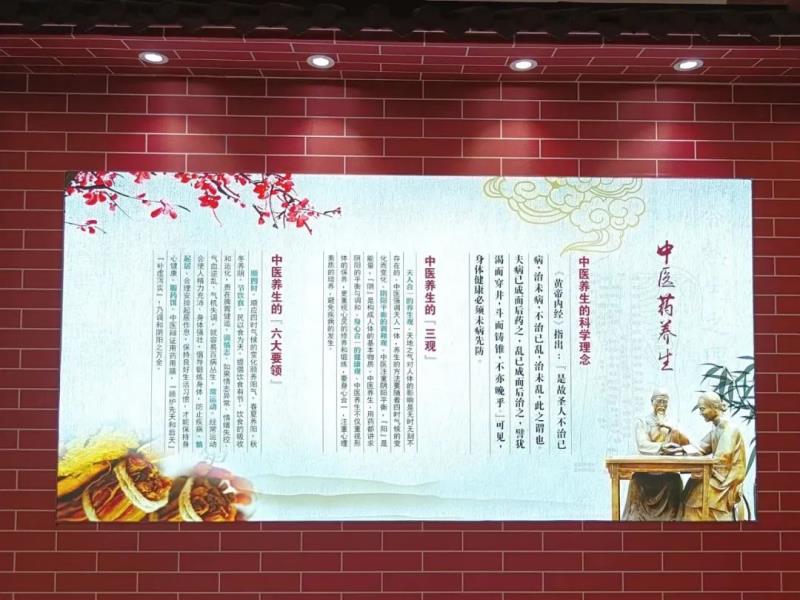 中医药养生
中医养生的科学理念
《黄帝内经》指出：“是故圣人不治已
病，治未病，不治已乱，治未乱，此之谓也。
夫病已成而后药之，乱已成而后治之，譬犹
渴而穿井，斗而铸锥，不亦晚乎。”可见，
身体健康必须未病先防。
中医养生的『三观』
天人合一的养生观，天地之气对人体的影响是无时无刻不
存在的，中医强调天人一体，养生的方法要随着四时气候的变
化而变化。阴阳平衡的调和观，中医注重阴阳平衡，『阳』是
能量，『阴』是构成人体的基本物质，中医养生、用药都讲求
阴阳的平衡与调和。身心合一的健康观，中医养生不仅重视形
体的保养，更重视心灵的修养和锻炼，要身心合一，注重心理
素质的培养，避免疾病的发生。
中医养生的『六大要领』
顺四时，顺应四时气候的变化颐养阳气。春夏养阳，秋
冬养阴。节饮食，民以食为天，提倡饮食有节，饮食的吸收
和运化，贵在脾胃健运。调情志，如果情志异常，情绪失控，
气血逆乱，气机失调，就容易百病丛生。常运动，经常运动
会使人精力充沛，身体强壮，倡导锻炼身体，防止疾病。慎
起居，合理安排起居作息，保持良好生活习惯，才能保持身
心健康。服药饵，中医辩证用药用膳，『顾护先天和后天』
『补虚泻实』，乃调和阴阳之万全。